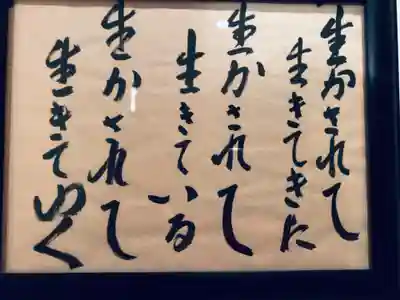 生かされて
生きてきた
生かされて
生きている
生かされて
生きてゆく